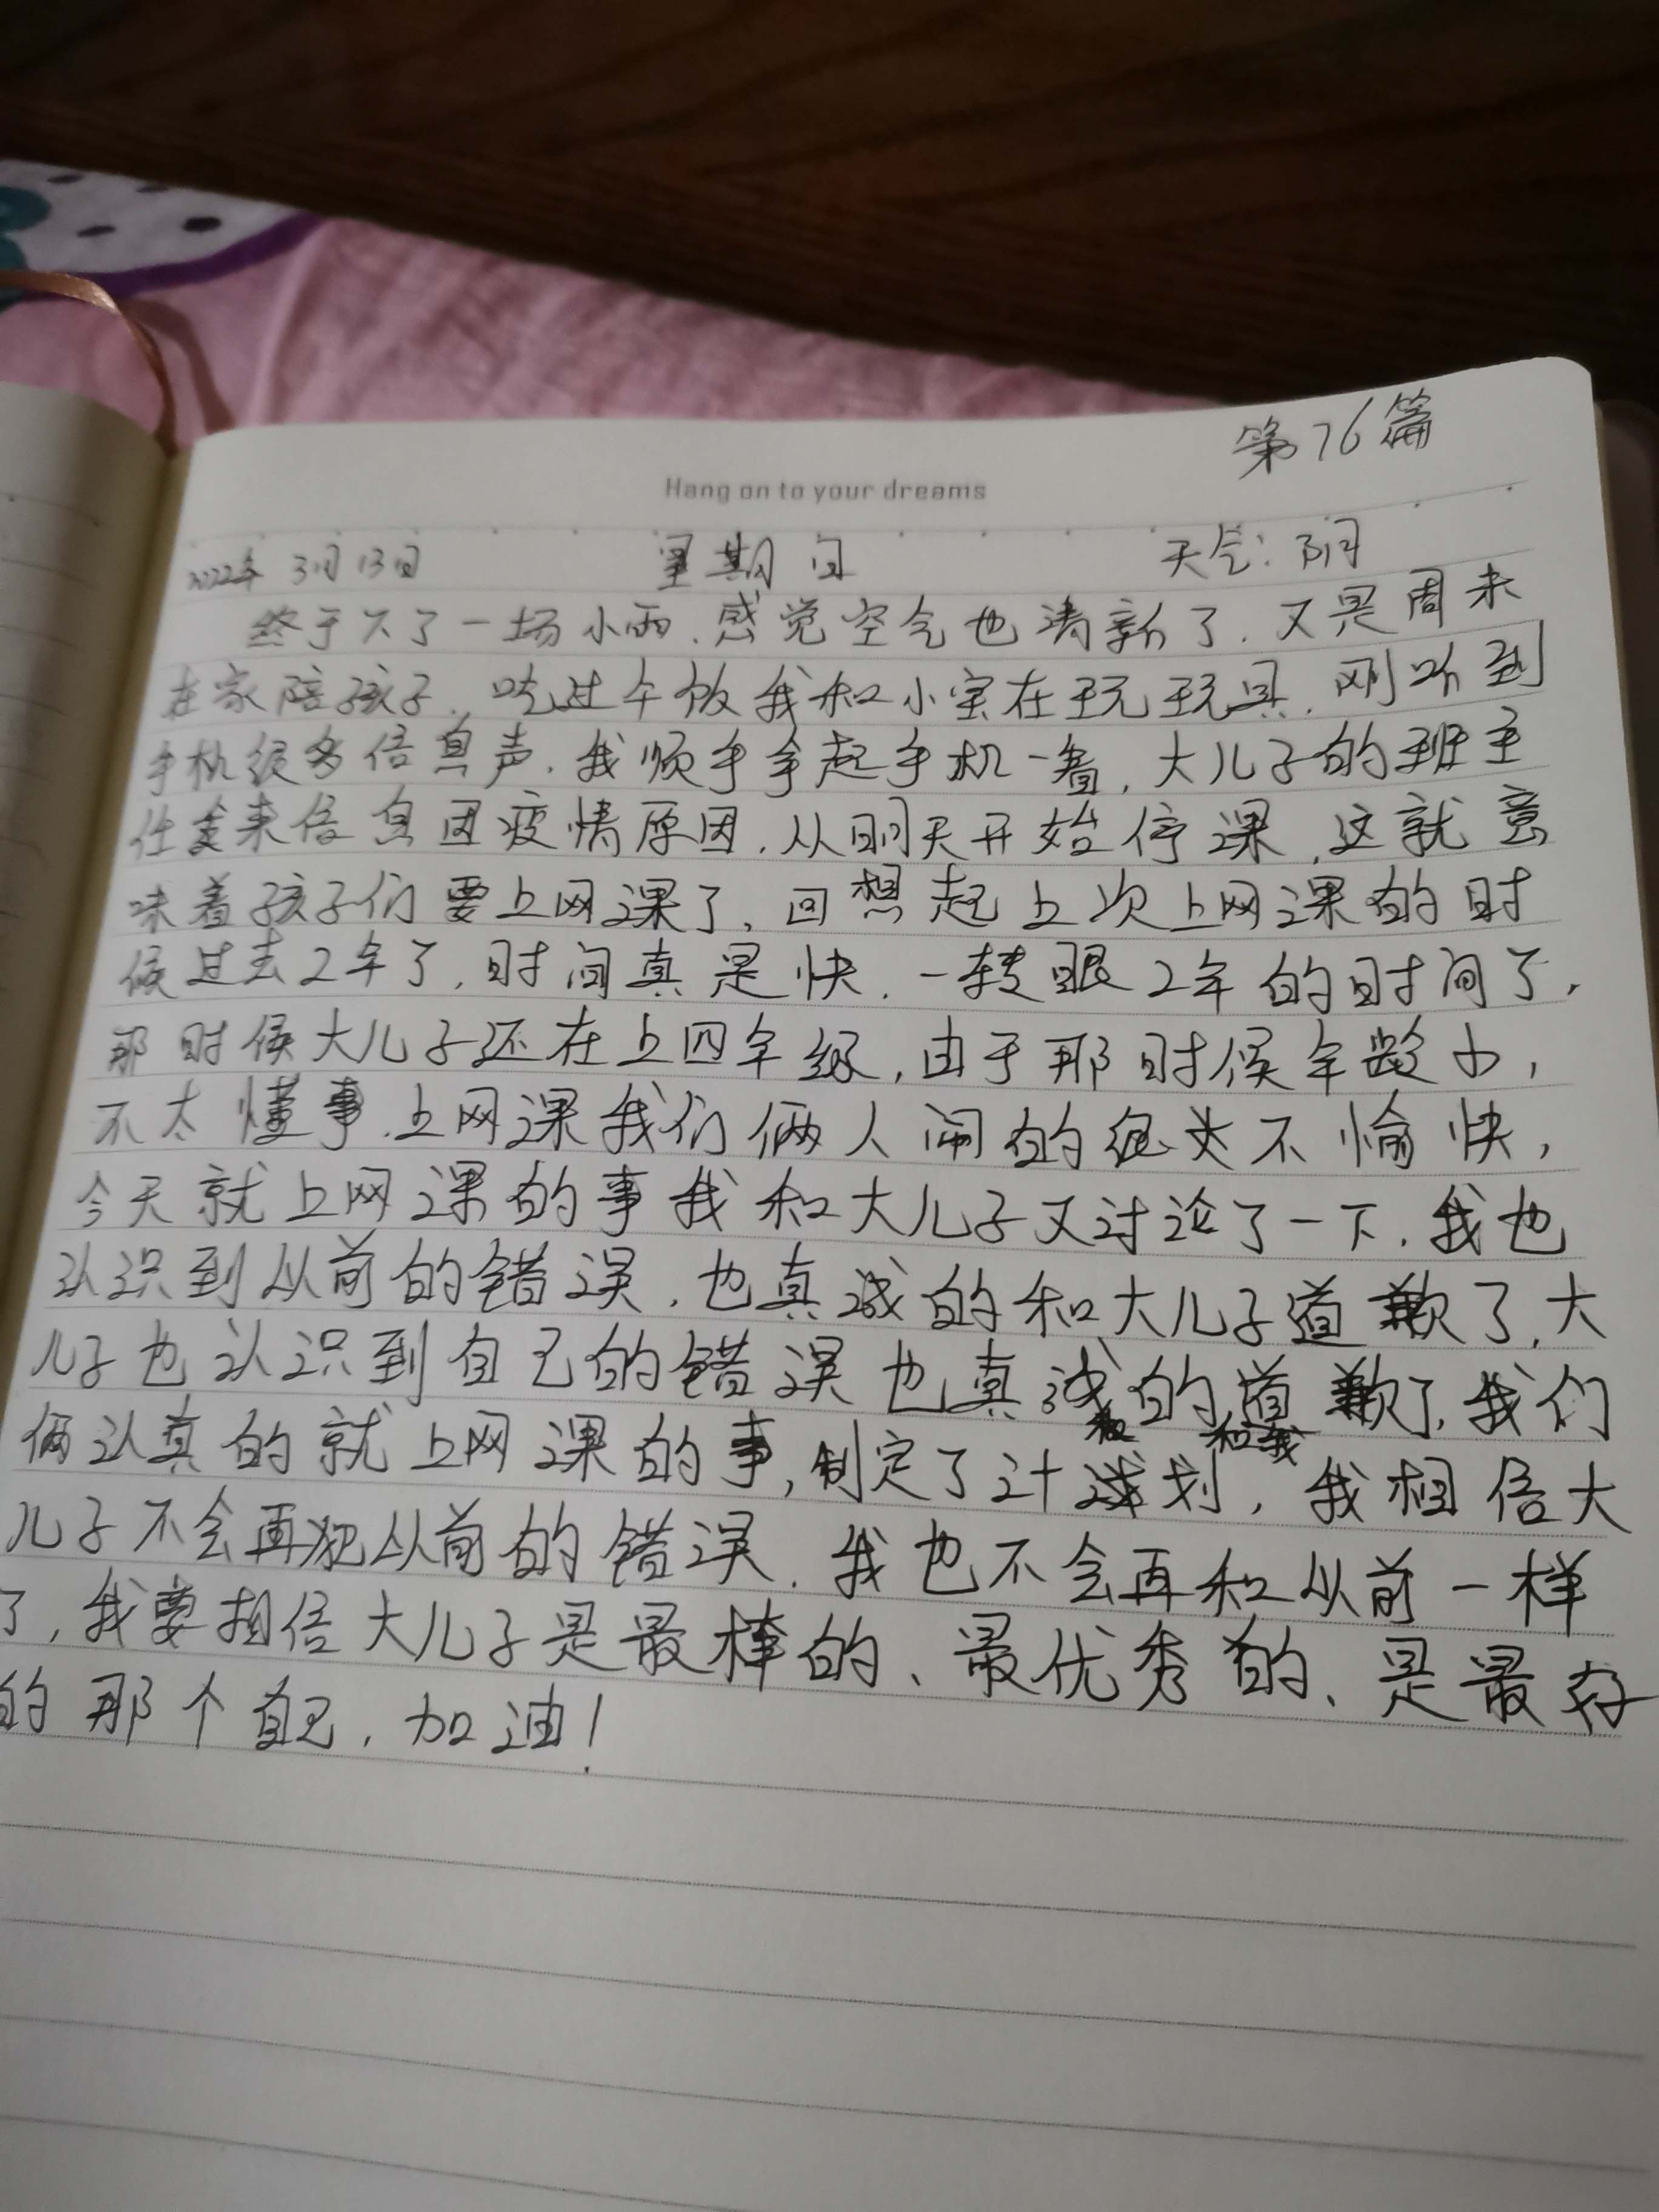 第76篇
Hang on to your dreams
2022年 3月13日 星期日 天气:阴
终于下了一场小雨,感觉空气也清新了,又是周末
在家陪孩子,吃过午饭我和小宝在玩玩具,刚听到
手机很多信息声,我顺手拿起手机一看,大儿子的班主
任发来信息因疫情原因,从明天开始停课,这就意
味着孩子们要上网课了,回想起上次上网课的时
候过去2年了,时间真是快,一转眼2年的时间了,
那时候大儿子还在上四年级,由于那时候年龄小,
不太懂事,上网课我们俩人闹的很不愉快,
今天就上网课的事我和大儿子又讨论了一下,我也
认识到从前的错误,也真诚的和大儿子道歉了,大
儿子也认识到自己的错误也真诚的和我道歉了,我们
俩认真的就上网课的事,制定了计划,我相信大
儿子不会再犯从前的错误,我也不会再和从前一样
了,我要相信大儿子是最棒的、最优秀的、是最好
的那个自己,加油!